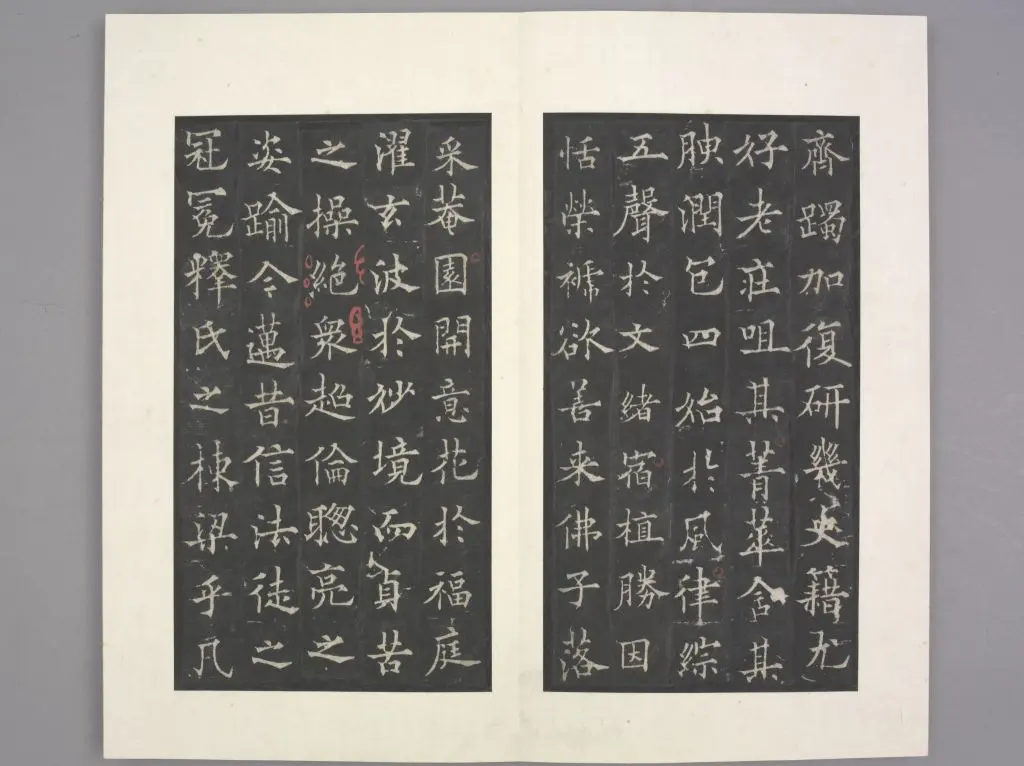 齊躅加復研幾史籍尤
好老莊咀其菁華含其
腴潤包四始於風律綜
五聲於文緒宿植勝因
恬榮褫欲善来佛子落
采菴園開意花於福庭
濯玄波於妙境而貞苦
之操絕衆超倫聰亮之
姿踰今邁昔信法徒之
冠冕釋氏之棟梁乎凡